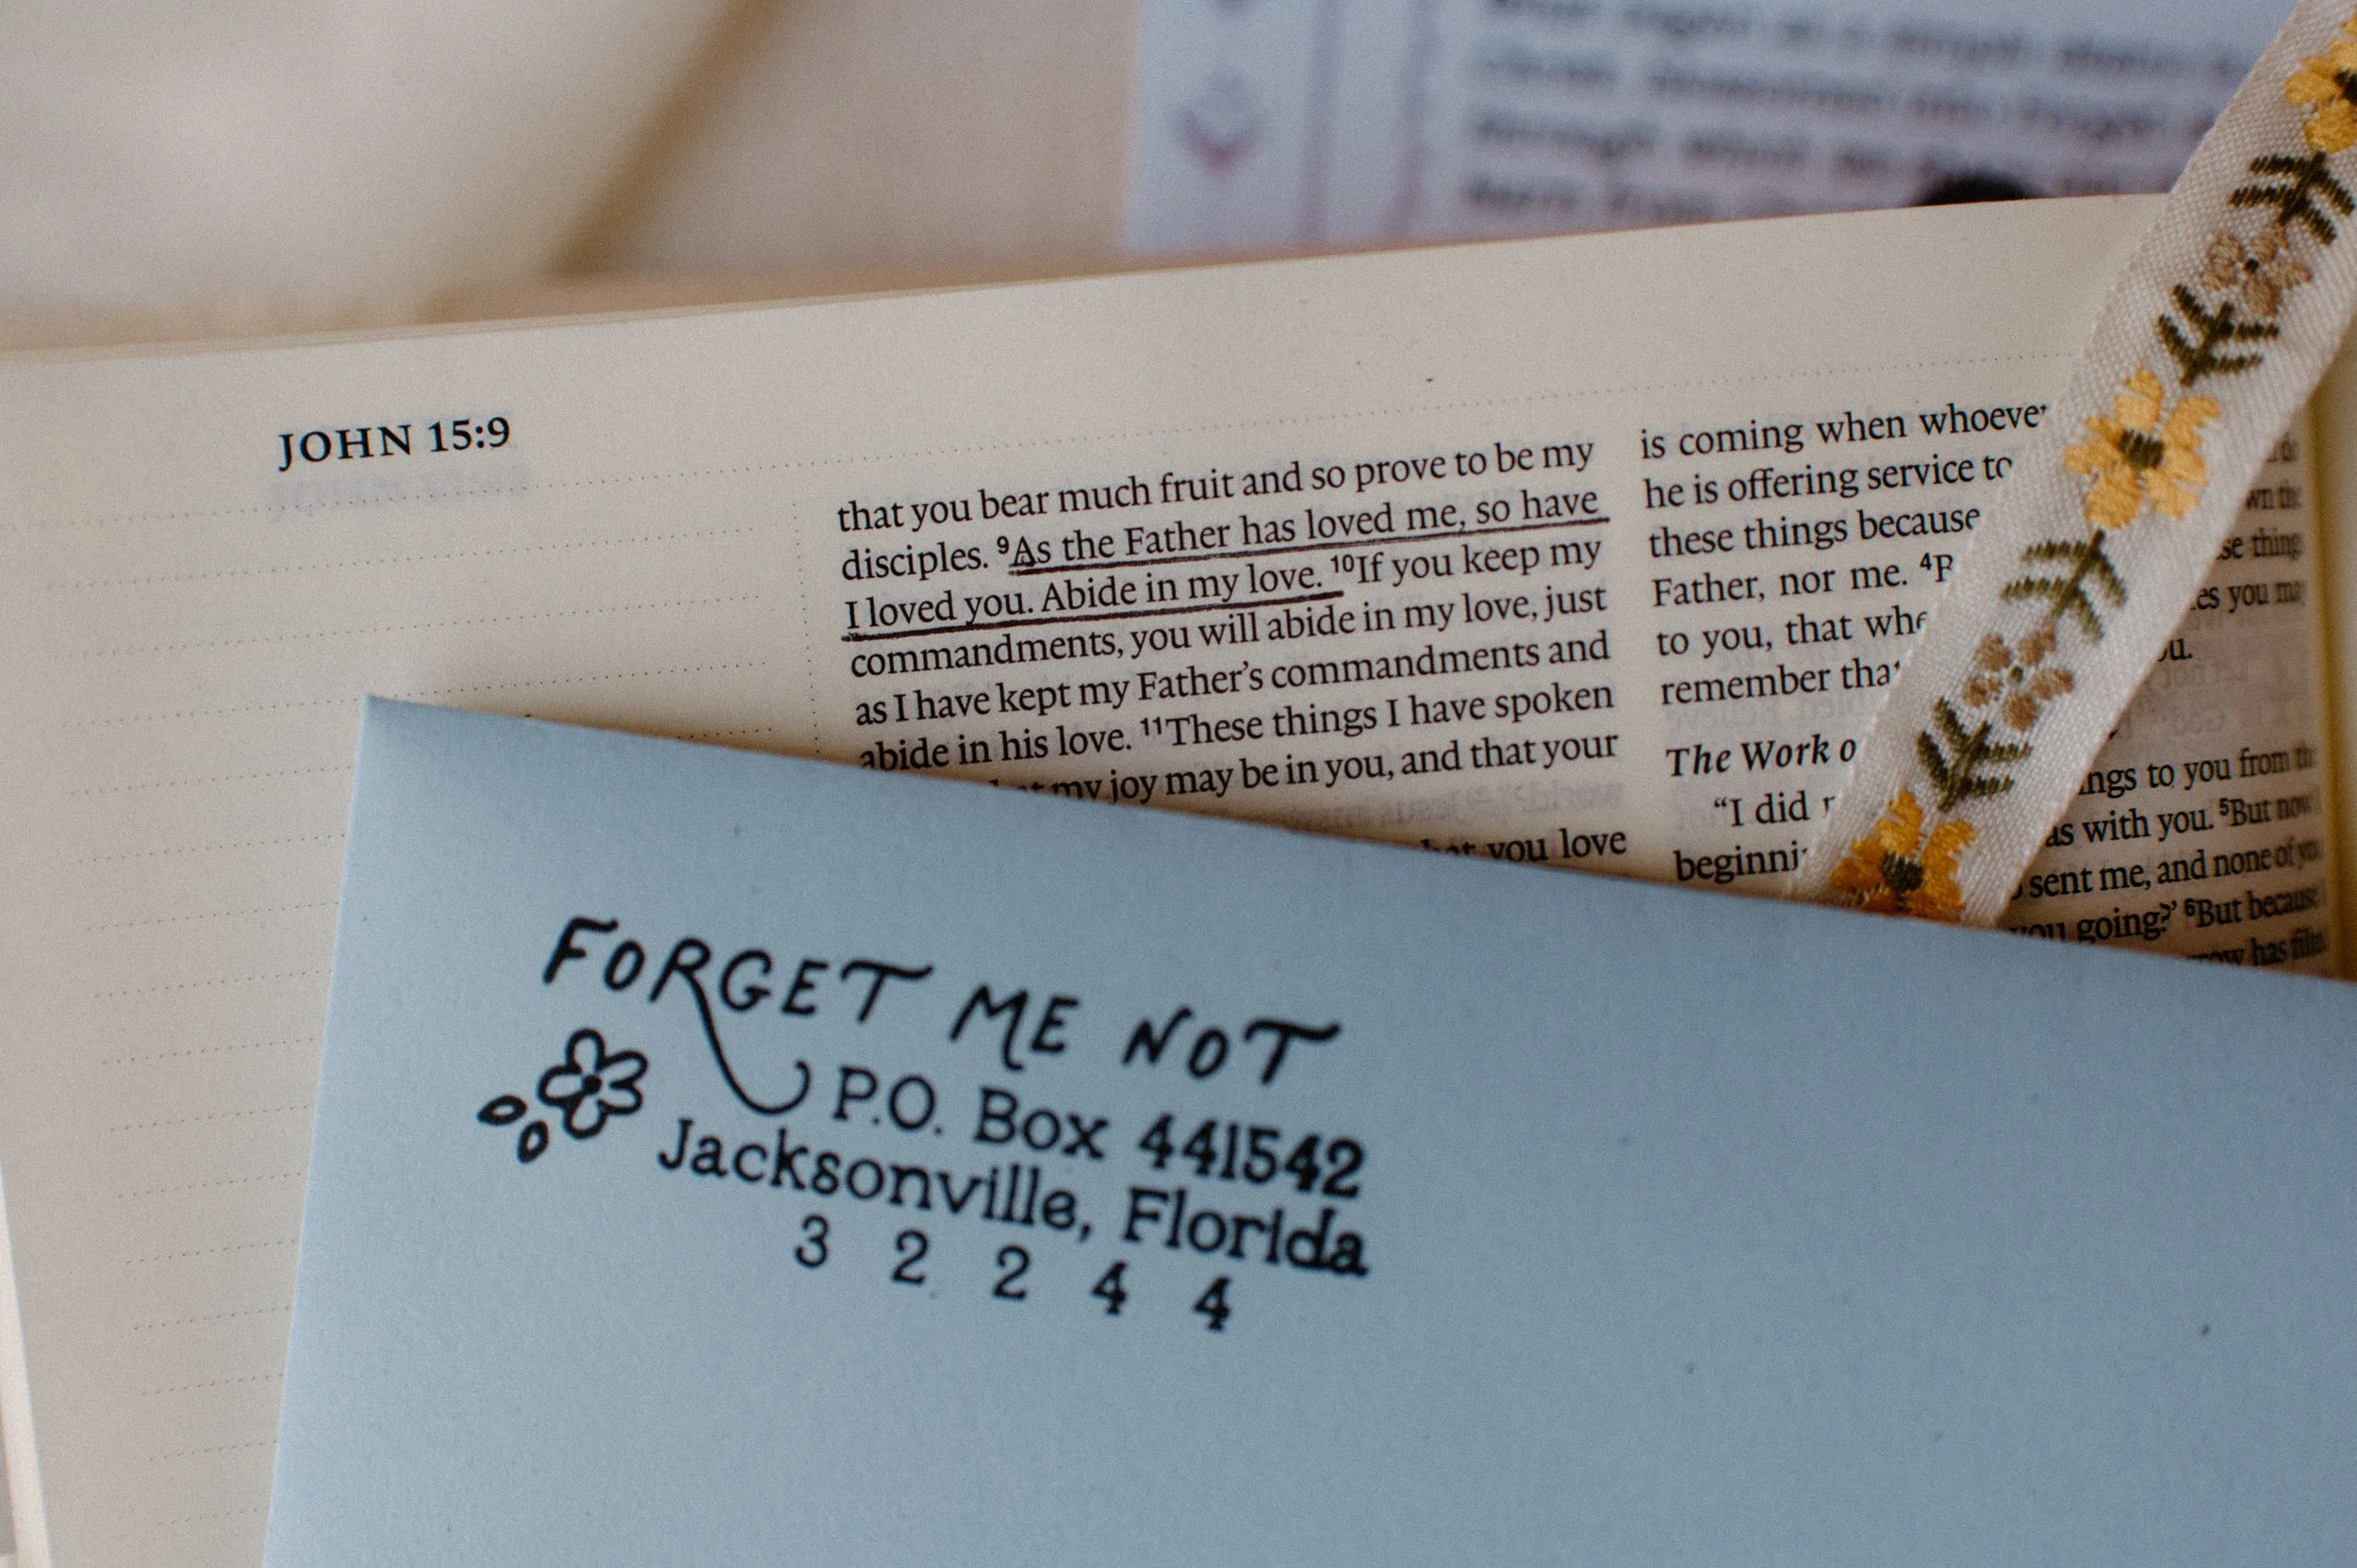 JOHN 15:9
that you bear much fruit and so prove to be my
disciples. ⁹As the Father has loved me, so have
I loved you. Abide in my love. ¹⁰If you keep my
commandments, you will abide in my love, just
as I have kept my Father’s commandments and
abide in his love. ¹¹These things I have spoken
my joy may be in you, and that your
you love
is coming when whoever
he is offering service to
these things because
Father, nor me. ⁴
to you, that
remember that
The Work o
“I did
beginni
wn the
se thing
es you ma
ou.
ngs to you from th
as with you. ⁵But now
sent me, and none of you
you going?’ ⁶But because
has fille
FORGET ME NOT
P.O. Box 441542
Jacksonville, Florida
3 2 2 4 4